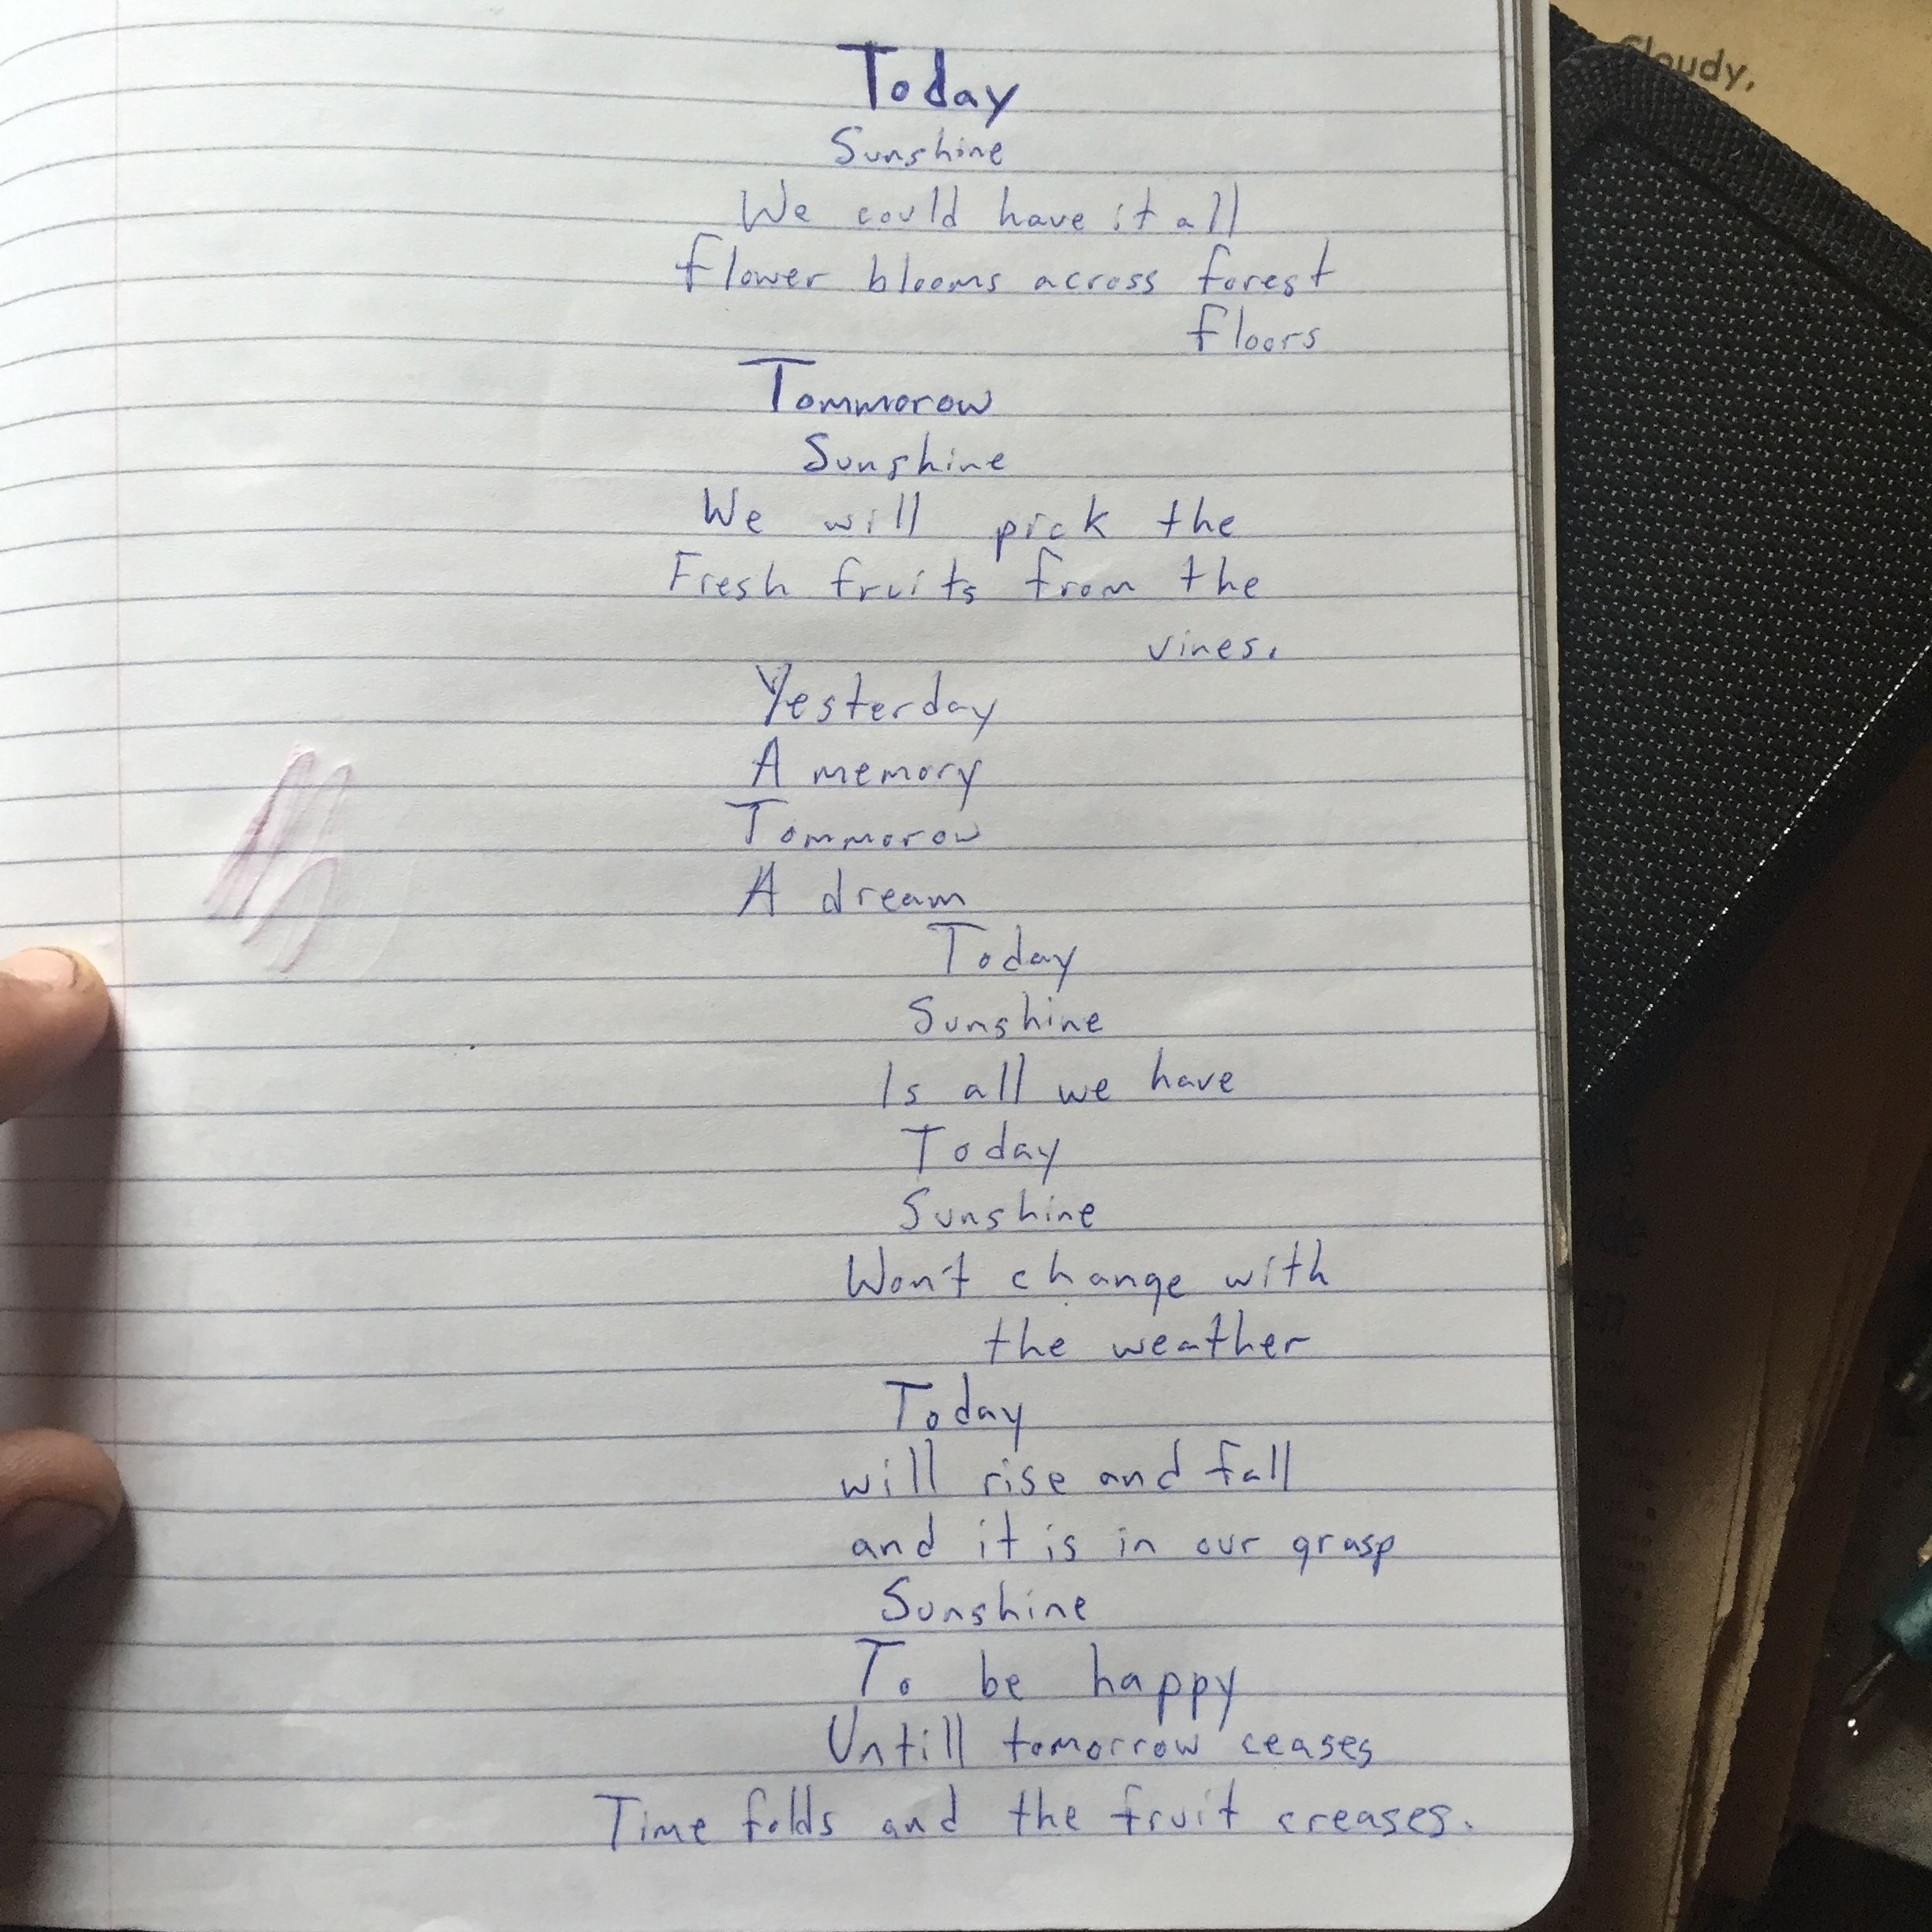 Cloudy,
Today
Sunshine
We could have it all
flower blooms across forest
floors
Tommorow
Sunshine
We will pick the
Fresh fruits from the
vines.
Yesterday
A memory
Tommorow
A dream
Today
Sunshine
Is all we have
Today
Sunshine
Won't change with
the weather
Today
will rise and fall
and it is in our grasp
Sunshine
To be happy
Untill tomorrow ceases
Time folds and the fruit creases.